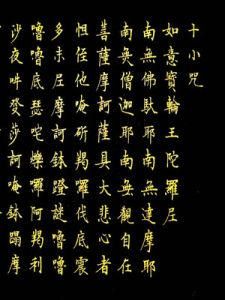 十小咒
如意寶輪王陀羅尼
南無佛馱耶南無達摩耶
南無僧迦耶南無觀自在
菩薩摩訶薩具大悲心者
怛侄他唵斫羯羅伐底震
多末尼摩訶鉢蹬謎嚕嚕
嚕底瑟咤爍囉阿羯利
沙夜吽癹莎訶唵鉢蹋摩